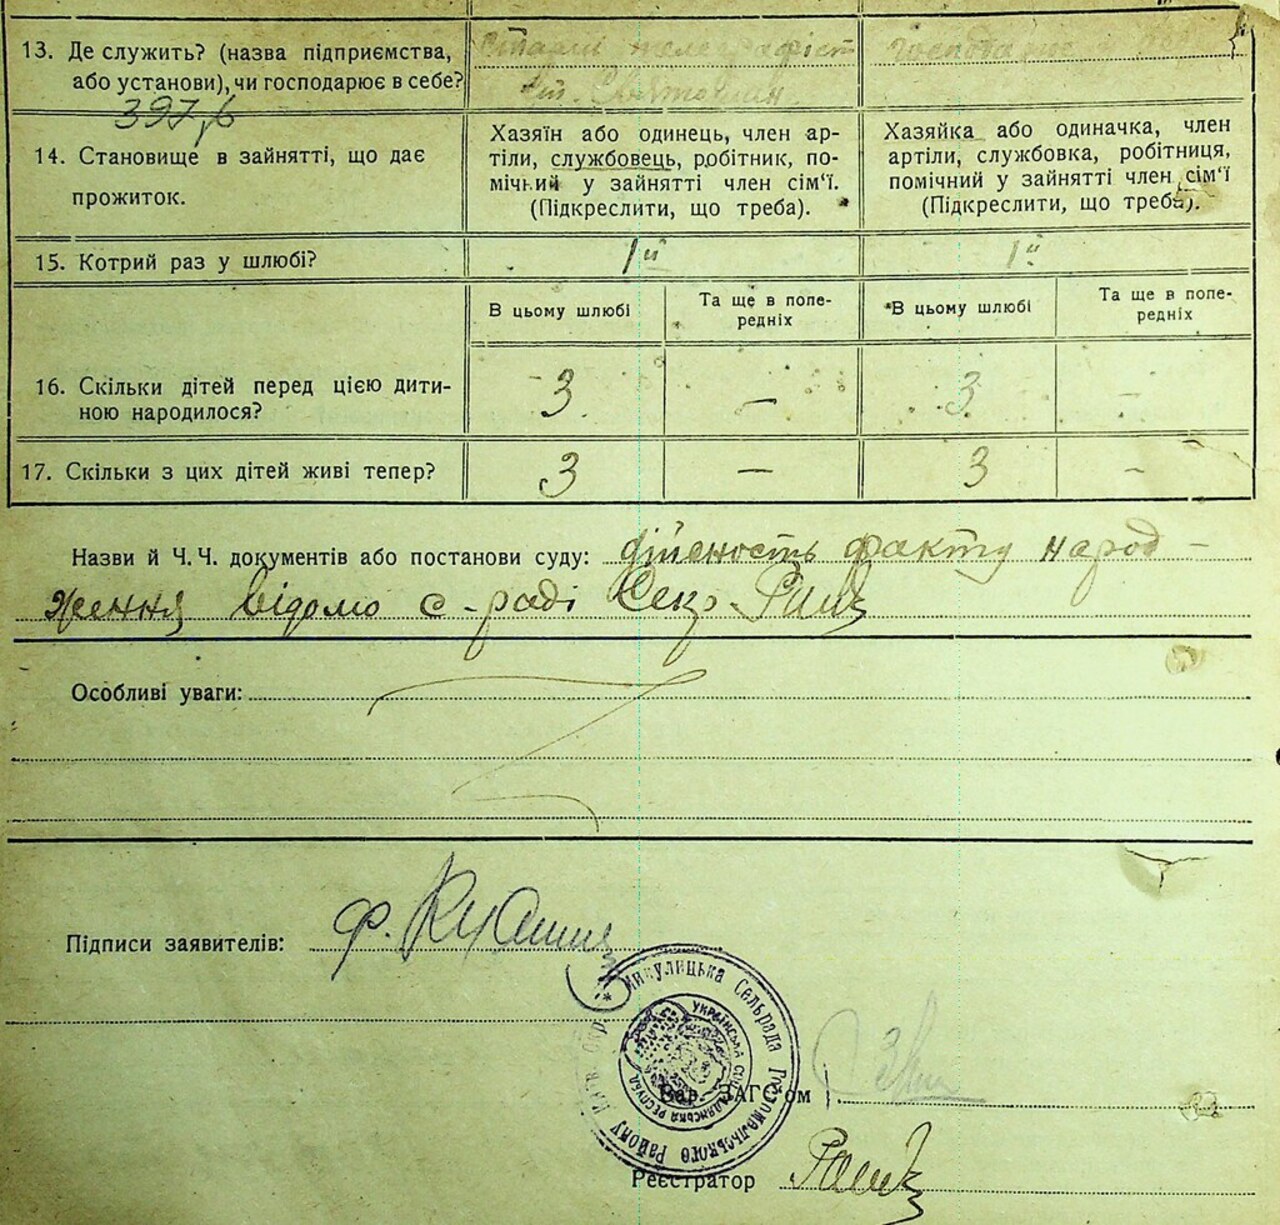 13. Де служить? (назва підприємства,
або установи), чи господарює в себе?
Старші телеграфіст
ст. Святошин
397
14. Становище в зайнятті, що дає
прожиток.
Хазяїн або одинець, член ар-
тіли, службовець, робітник, по-
мічний у зайнятті член сім'ї.
(Підкреслити, що треба).
Хазяйка або одиначка, член
артіли, службовка, робітниця,
помічний у зайнятті член сім'ї
(Підкреслити, що треба).
15. Котрий раз у шлюбі?
1й
1й
В цьому шлюбі
Та ще в попе-
редніх
В цьому шлюбі
Та ще в попе-
редніх
16. Скільки дітей перед цією дити-
ною народилося?
3 — 3 -
17. Скільки з цих дітей живі тепер?
3 — 3 -
Назви й Ч. Ч. документів або постанови суду: дійсность факту народ-
ження відомо с-раді Секр
Особливі уваги:
Підписи заявителів: Ф.
Микулицька Сельрада Гостомельського Району Київ. Окр.
УКРАЇНСЬКА СОЦ. РАДЯНСЬКА РЕСПУБ.
Зав. ЗАГС'ом
Реєстратор